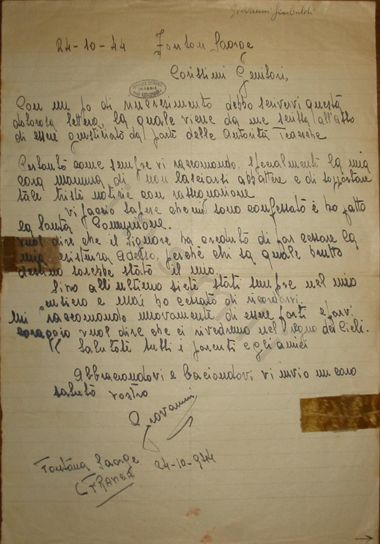 24-10-44 Fontan Saorge
Carissimi Genitori,
Con un pò di rincrescimento debbo scrivervi questa
dolorosa lettera, la quale viene da me scritta all'atto
di essere giustiziato dal parte delle Autorità Tedesche
Pertanto come sempre vi raccomando, specialmente la mia
cara mamma di non lasciarsi abbattere e di sopportare
tale triste notizie con rassegnazione.
Vi faccio sapere che mi sono confessato è ho fatto
la Santa Comunione.
vuol dire che il Signore ha creduto di far cessare la
mia esistenza adesso, perché chi sa quale brutto
destino sarebbe stato il mio.
Sino all'ultimo siete stati sempre nel mio
pensiero e mai ho cessato di ricordarvi.
Mi raccomando nuovamente di essere forti e farvi
coraggio vuol dire che ci rivedremo nel regno dei Cieli.
Salutate tutti i parenti e gli amici
Abbracciandovi e Baciandovi vi invio un caro
saluto vostro
Giovanni
Fontana Saorge 24-10-944
(FRANCIA)